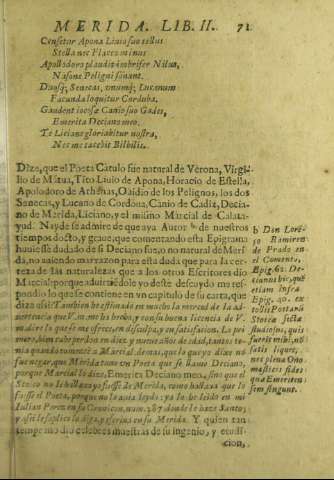 MERIDA. LIB. II. 71
Censetur Apona Liuio suo tellus
Stella nec Flacco minus
Apollodoro plaudit imbrifer Nilus,
Nasone Peligni sonant.
Duosq; Senecas, vnumq; Lucanum
Facunda loquitur Corduba.
Gaudent iocosæ Canio suo Gades,
Emerita Deciano meo.
Te Liciane gloriabitur nostra,
Nec me tacebit Bilbilis.
Dize, que el Poeta Catulo fue natural de Verona, Virgi-
lio de Mãtua, Tito Liuio de Apona, Horacio de Estella,
Apolodoro de Athenas, Ouidio de los Pelignos, los dos
Senecas, y Lucano de Cordoua, Canio de Cadiz, Decia-
no de Merida, Liciano, y el mismo Marcial de Calata-
yud. Nadie se admire de que aya Autor b de nuestros
tiempos docto, y graue, que comentando esta Epigrama
huuiesse dudado de si Deciano fue, o no natural de Meri-
da, no auiendo marrazon para esta duda que para la cer-
teza de las naturalezas que a los otros Escritores dio
Marcial: porque aduirtiẽdole yo deste descuydo me res-
pondio lo que se contiene en vn capitulo de su carta, que
dize assi: Tambien he
mirado en mucho la merced de la ad-
uertencia que V.m. me ha hecho, y con su buena licencia de V.
m. dire lo que se me ofrece, en desculpa, y en satisfacion. Lo pri
mero, bien cabe perdon en diez y nueue años de edad, tantos te-
nia quando comentè a Marcial demas, que lo que yo dixe no
fue negar, que Merida tuuo vn Poeta que se llamò Deciano,
porque Marcial lo dize, Emerita Deciano meo, sino que el
Stoico no le hallaua yo fuesse de Merida, como hallaua que lo
fuesse el Poeta, porque no lo auia leydo: ya lo he leido en mi
Iulian Perez en su Cronicon, num. 287 donde le haze Santo;
y assi le suplico lo diga, y escriua en su Merida. Y quien tan
temprano dio celebres muestras de su ingenio, y erudi-
cion,
b Don Lorẽ-
ço Ramirez
de Prado en
el Comento,
Epig. 62. De-
cianus hic, qui
etiam infra
Epig. 40. ex
tollit Portari
Storia secta
studiosus, quis
fuerit mihi, nõ
satis liquet,
nec plena Om-
mastices fides
qua Emeriten
sem fingunt.